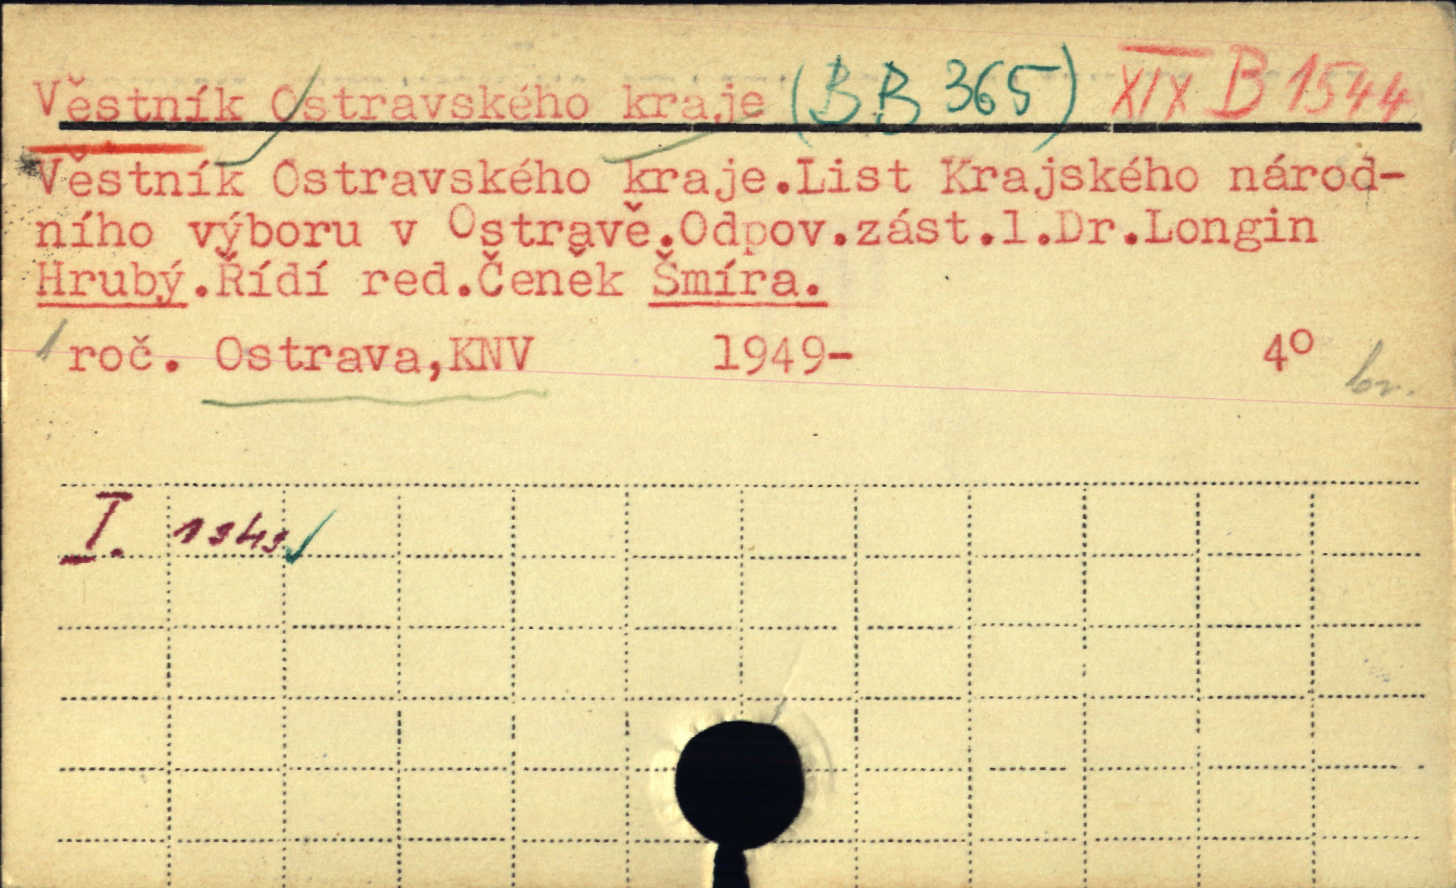 Věstník Ostravského kraje (BB 365) XIX B 1544
Věstník Ostravského kraje.List Krajského národ-
ního výboru v Ostravě.Odpov.zást.1.Dr.Longin
Hrubý.Řídí red.Čeněk Šmíra.
1 roč. Ostrava,KNV 1949- 4º br.
I. 1949